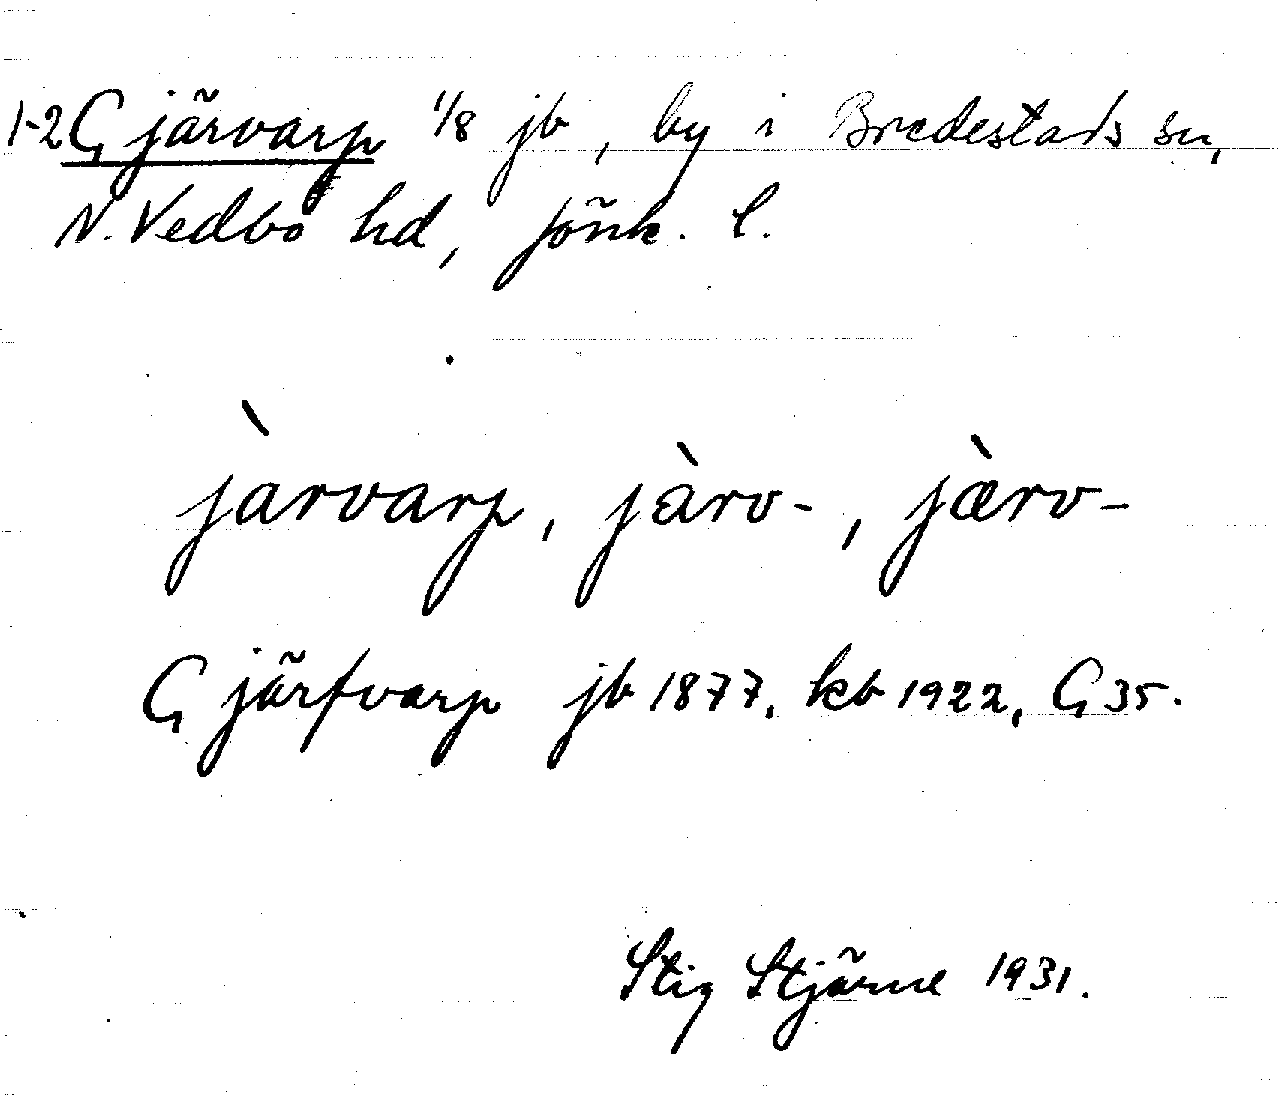 1-2 Gjärvarp 1/8 jb, by i Bredestads sn,
N. Vedbo hd, Jönk. l.
jàrvarp, jàrv-, jærv-
Gjärfvarp jb 1877, kb 1922, G 35.
Stig Stjärne 1931.